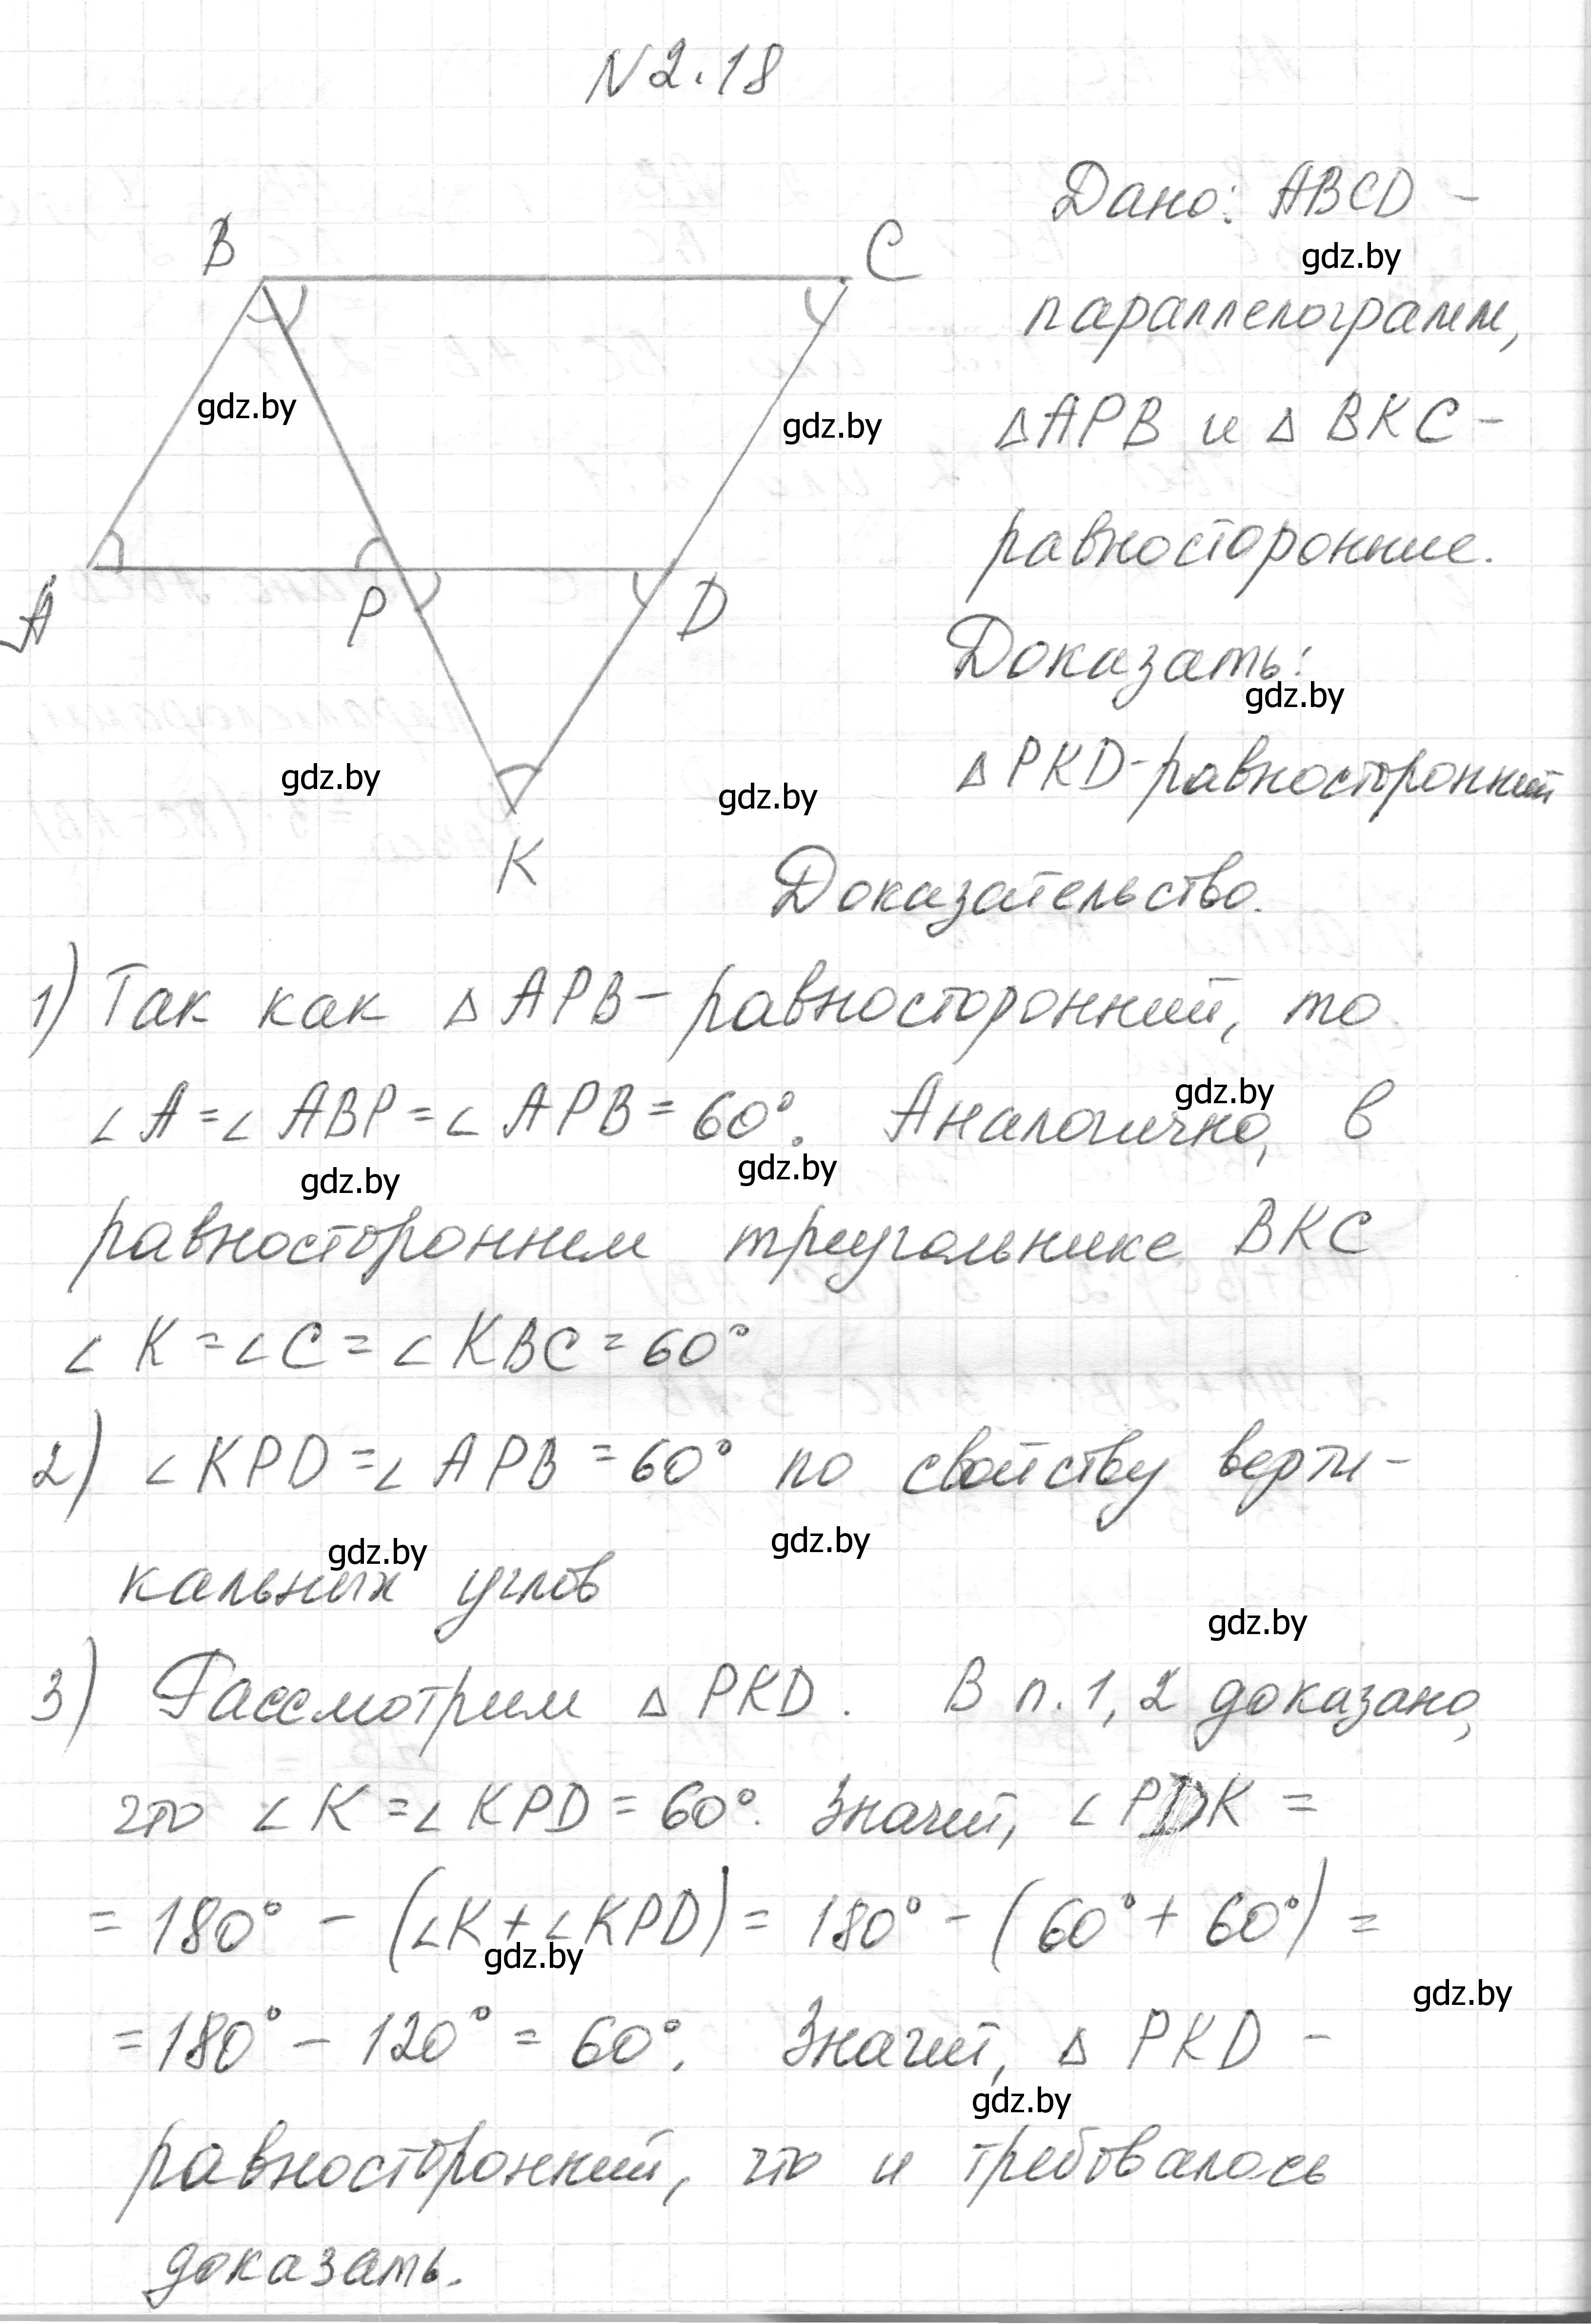 N 2.18
Дано: ABCD -
gdz.by
B
C
параллелограмм,
gdz.by
gdz.by
△APB и △ BKC -
равносторонние.
A
P
D
Доказать:
gdz.by
△ PKD - равносторонний
gdz.by
gdz.by
K
Доказательство.
1) Так как △ APB - равносторонний, то
gdz.by
∠A = ∠ABP = ∠APB = 60°. Аналогично, в
gdz.by
gdz.by
равностороннем треугольнике BKC
∠K = ∠C = ∠KBC = 60°
2) ∠KPD = ∠APB = 60° по свойству верти-
gdz.by
gdz.by
кальных углов
gdz.by
3) Рассмотрим △ PKD. В п. 1, 2 доказано,
что ∠K = ∠KPD = 60°. Значит, ∠PDK =
= 180° - (∠K + ∠KPD) = 180° - (60° + 60°) =
gdz.by
gdz.by
= 180° - 120° = 60°. Значит, △ PKD -
gdz.by
равносторонний, что и требовалось
доказать.